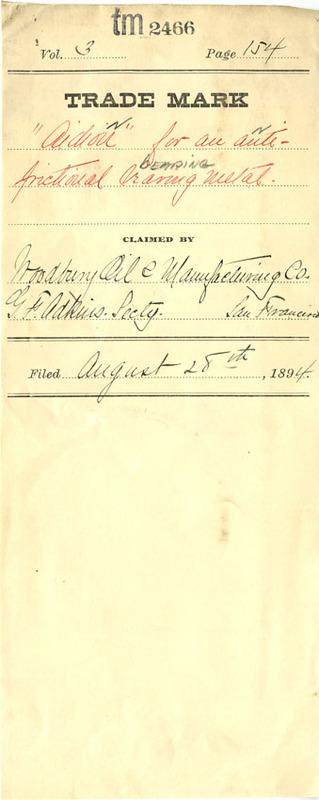 tm 2466
Vol. 3 Page 154
TRADE MARK
"Aidion" for an anti-
BEARING
frictional bearing metal.
CLAIMED BY
Woodbury Oil & Manufacturing Co.
G. F. Adkins. Secty. San Francisco
Filed August 28th, 1894.